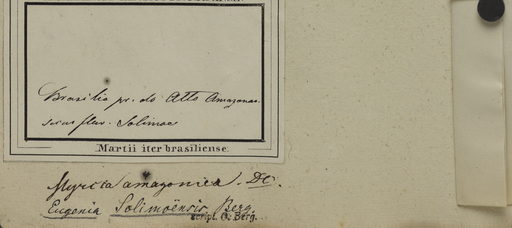 Brasilia pr. do Alto Amazonas
secus fluv. Solimoes
Martii iter brasiliense.
Myrcia amazonica. DC.
Eugenia Solimoënsis Berg.
script. O. Berg.